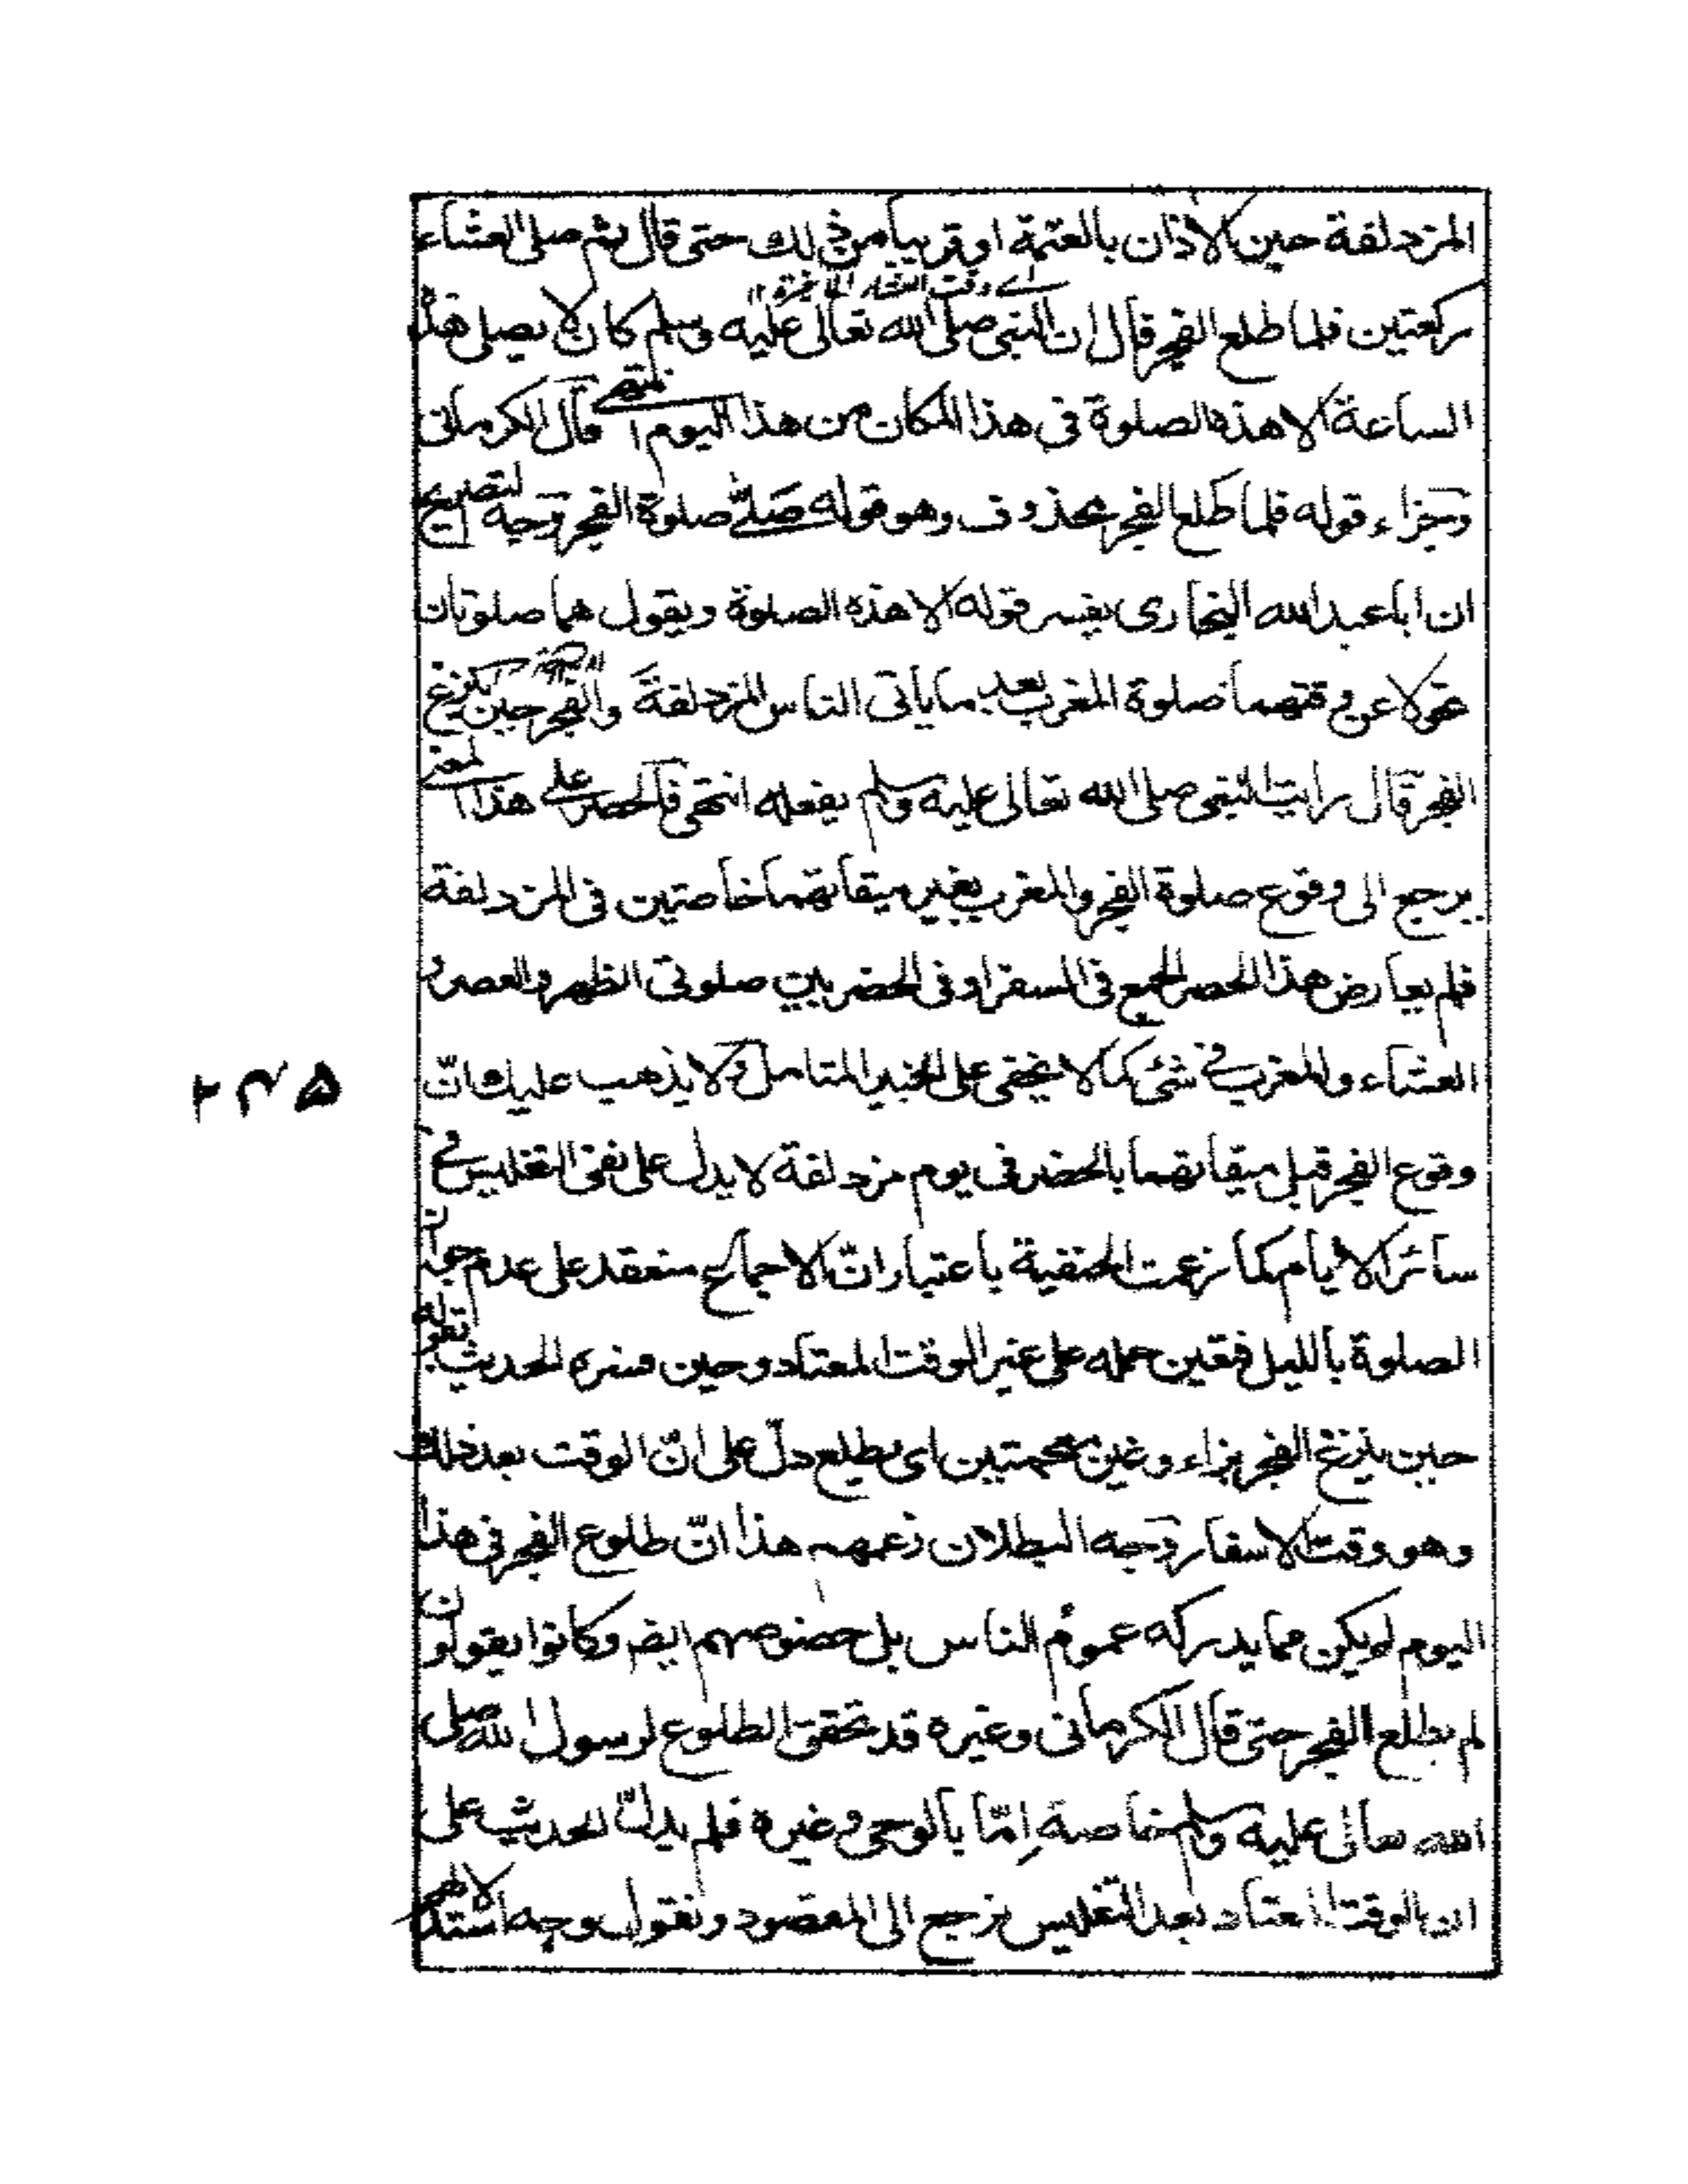 المزدلفة حين الاذان بالعتمة او قريبا من ذلك حتى قال ثم صلى العشاء
اے وقت العشاء الآخرة ١٢
ركعتين فلما طلع الفجر قال ان النبى صلى الله تعالى عليه وسلم كان لا يصلى هذه
الساعة الا هذه الصلوة فى هذا المكان من هذا اليوم انتهى قال الكرمانى
وجزاء قوله فلما طلع الفجر محذوف وهو قوله صلّى صلوة الفجر وجه لتصريح
ان ابا عبد الله البخارى يفسر قوله الا هذه الصلوة ويقول هما صلوتان
تحولا عن وقتهما صلوة المغرب بعد ما ياتى الناس المزدلفة والفجر حين يبزغ
الفجر قال رايت النبى صلى الله تعالى عليه وسلم يفعله انتهى فالحصر على هذا المعنى
يرجع الى وقوع صلوة الفجر والمغرب بغير ميقاتهما خاصتين فى المزدلفة
فلم يعارض هذا الحصر الجمع فى السفر او فى الحضر بين صلوتى الظهر والعصر و
العشاء والمغرب فى شئ كما لا يخفى على الخبير المتامل ولا يذهب عليك انّ
وقوع الفجر قبل ميقاتهما بالحضر فى يوم مزدلفة لا يدل على نفى التغليس فى
سائر الايام كما زعمت الحنفية باعتبار انّ الاجماع منعقد على عدم جواز
الصلوة بالليل فتعين حمله على غير الوقت المعتاد وحين فسره الحديث بقوله
حين يبزغ الفجر بزاء وغين معجمتين اى يطلع دلّ على انّ الوقت بعد ذلك
وهو وقت الاسفار وجه البطلان زعمهم هذا انّ طلوع الفجر فى هذا
اليوم لم يكن مما يدركه عموم الناس بل خصوصهم ايضا وكانوا يقولون
لم يطلع الفجر حتى قال الكرمانى وغيره قد تحقق الطلوع لرسول الله صلى
الله تعالى عليه وسلم خاصة اِمّا بالوحى وغيره فلم يدلّ الحديث على
ان الوقت المعتاد بعد التغليس نرجع الى المقصود ونقول وجه استدلالهم
٢٤٥